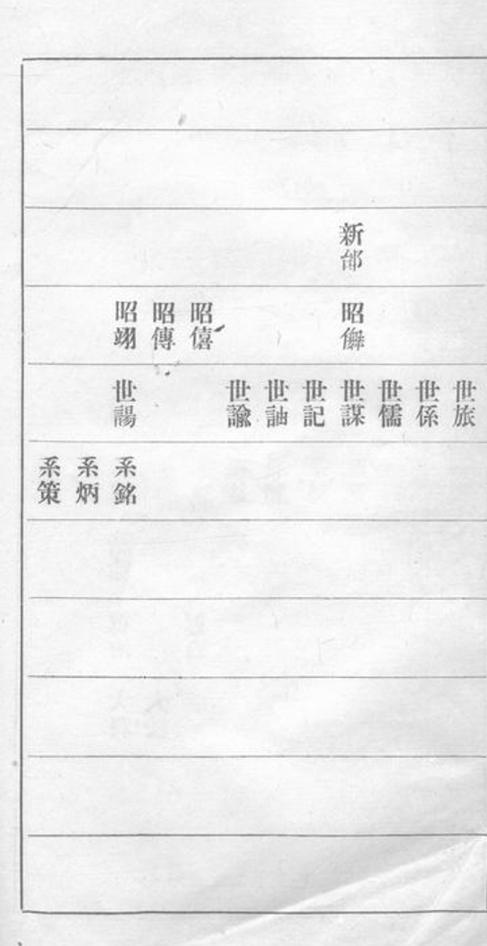 世旅
世係
世儒
新 昭 世謀
世記
世
世諭
昭僖
昭傳
昭翊 世諹 系銘
系炳
系策